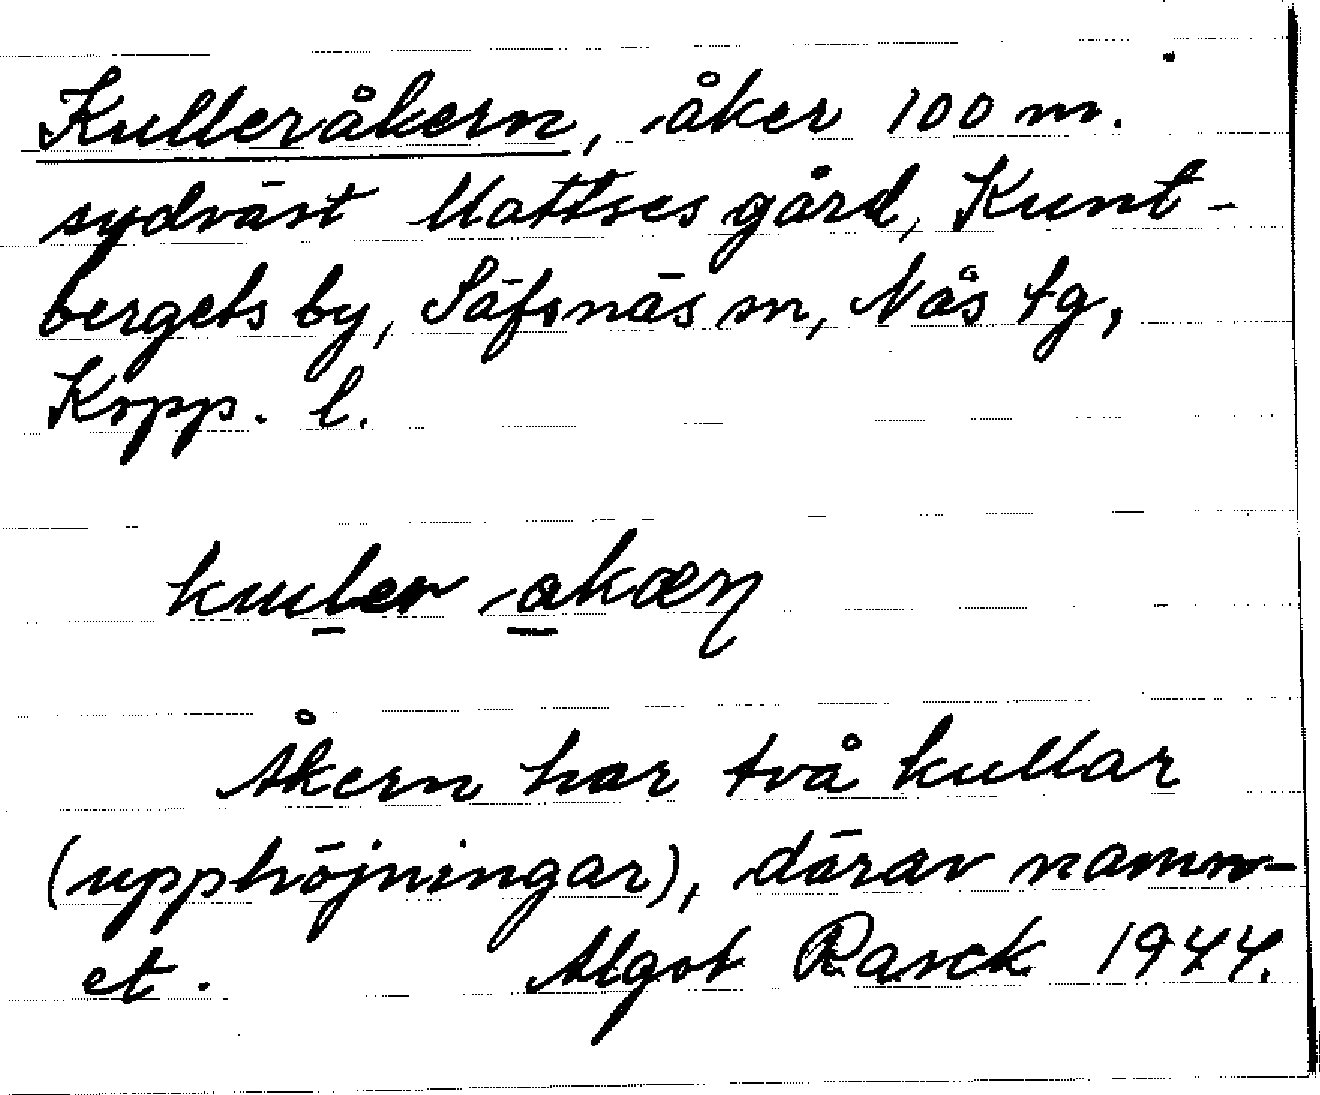 Kulleråkern, åker 100 m.
sydväst Mattses gård, Kunt-
bergets by, Säfsnäs sn, Nås tg,
Kopp. l.
kuuler akæn
Åkern har två kullar
(upphöjningar), därav namn-
et. Algot Rasck 1944.